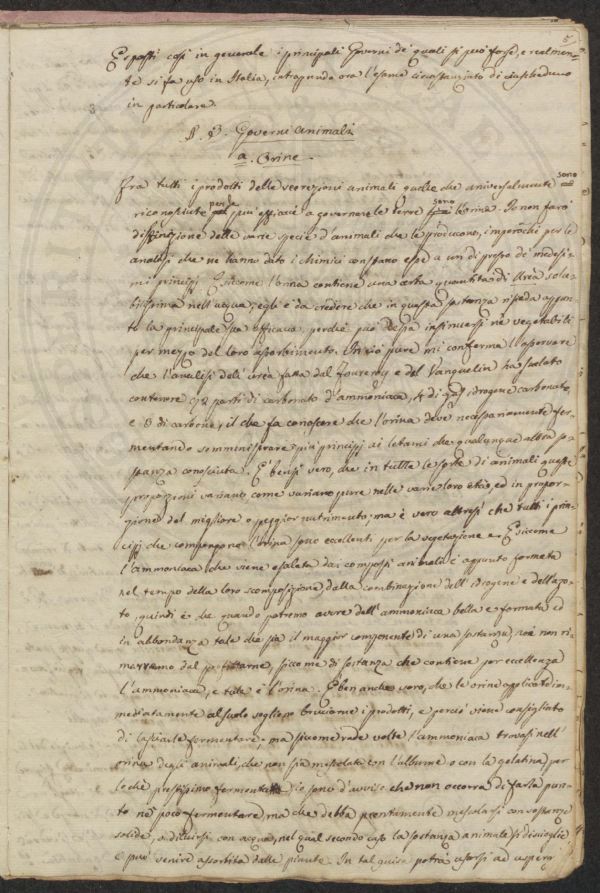 5
Esposti così in generale i principali Governi de' quali si può forse, e realmen-
te si fa uso in Italia, intraprendo ora l'esame circostanziato di ciascheduno
in particolare.
§. 3. Governi animali
a. Orine.
Fra tutti i prodotti delle secrezioni animali quelle che universalmente sono
riconosciute per le più efficaci a governare le terre sono l'orina. Io non farò
distinzione delle varie specie d'animali che le producono, imperochè per le
analisi che ne hanno dato i chimici constano esse a un di presso de' medesi-
mi principj. E siccome l'orina contiene una certa quantità di Urea solu-
bilissima nell'acqua, egli è da credere che in questa sostanza risieda appun-
to la principale sua efficacia, perchè può essa insinuarsi ne' vegetabili
per mezzo del loro assorbimento. In ciò pure mi conferma l'osservare
che l'analisi dell'urea fatta dal Fourcroy e del Vauquelin ha svelato
contenere 92 parti di carbonato d'ammoniaca, 4 di gas idrogene carbonato,
e 3 di carbone, il che fa conoscere che l'orina deve necessariamente fer-
mentando somministrare più principj ai letami che qualunque altra so-
stanza conosciuta. È bensì vero, che in tutte le sorte di animali queste
proporzioni variano come variano pure nelle varie loro età, ed in propor-
zione del migliore o peggior nutrimento; ma è vero altresì che tutti i prin-
cipj che compongono l'orina sono eccellenti per la vegetazione. E siccome
l'ammoniaca che viene esalata dai composti animali è appunto formata
nel tempo della loro scomposizione dalla combinazione dell'idrogene e dell'azo-
to, quindi è che quando potremo avere dell'ammoniaca bella e formata ed
in abbondanza tale che sia il maggior componente di una sostanza, noi non ri-
marremo dal profittarne, siccome di sostanza che contiene per eccellenza
l'ammoniaca, e tale è l'orina. È ben anche vero, che le orine applicate im-
mediatamente al suolo sogliono bruciarne i prodotti, e perciò viene consigliato
di lasciarle fermentare; ma siccome rade volte l'ammoniaca trovasi nell'
orina degli animali, che non sia mescolata con l'albume o con la gelatina, per
lo che prestissimo fermenta, io sono d'avviso che non occorra di farla pun-
to nè poco fermentare, ma che debba prontamente mescolarsi con sostanze
solide, o diluirsi con acqua, nel qual secondo caso la sostanza animale si discioglie
e può venire assorbita dalle piante. In tal guisa potrà usarsi ad asperg